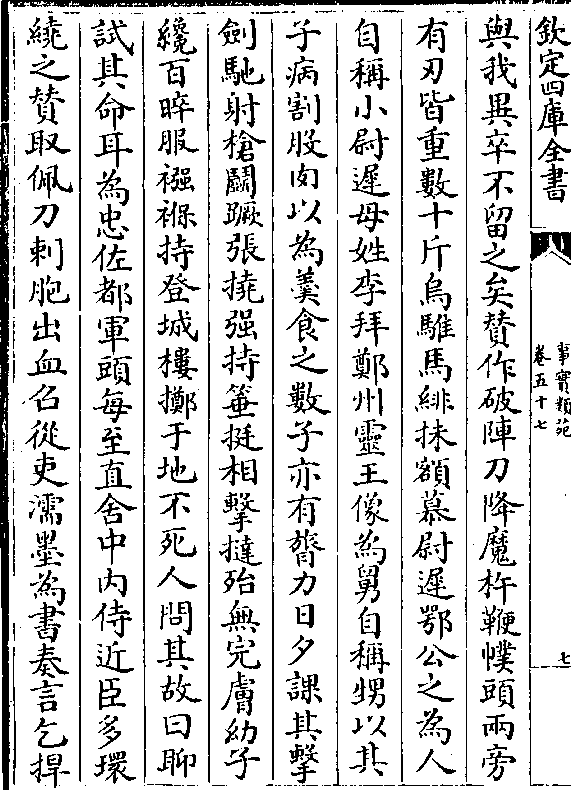 欽定四庫全書
事實類苑
卷五十七
七
與我異卒不留之矣贊作破陣刀降魔杵鞭幞頭兩旁
有刃皆重數十斤烏騅馬緋抹額慕尉遲鄂公之為人
自稱小尉遲母姓李拜鄭州靈王像為舅自稱甥以其
子病割股肉以為羹食之數子亦有膂力日夕課其擊
劍馳射槍鬭蹶張撓强持箠挺相擊撻殆無完膚幼子
纔百晬服襁褓持登城樓擲于地不死人問其故曰聊
試其命耳為忠佐都軍頭每至直舍中内侍近臣多環
繞之贊取佩刀刺胞出血召從吏濡墨為書奏言乞捍